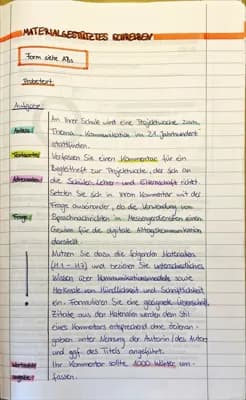 MATERIALGESTÜTZTES SCHREIBEN
Form siehe ABs
Probetext
Aufgabe:
Anlass An Ihrer Schule wird eine Projektwoche zum
Thema „Kommunikation im 21. Jahrhundert"
stattfinden.
Textsorte Verfassen Sie einen Kommentar für ein
Begleitheft zur Projektwoche, der sich an
Adressaten die Schüler-, Lehrer- und Elternschaft richtet.
Setzen Sie sich in Ihrem Kommentar mit der
Frage Frage auseinander, ob die Verwendung von
Sprachnachrichten in Messengerdiensten einen
Gewinn für die digitale Alltagskommunikation
darstellt.
! Nutzen Sie dazu die folgenden Materialien
(M1 - M7) und beziehen Sie unterrichtliches
Wissen über Kommunikationsmodelle sowie
Merkmale von Mündlichkeit und Schriftlichkeit
ein. Formulieren Sie eine geeignete Überschrift.
Zitate aus den Materialien werden dem Stil
eines Kommentars entsprechend ohne Zeilenan-
gaben unter Nennung der Autorin / des Autors
und ggf. des Titels angeführt.
Wortanzahl Ihr Kommentar sollte 1000 Wörter um-
fassen.